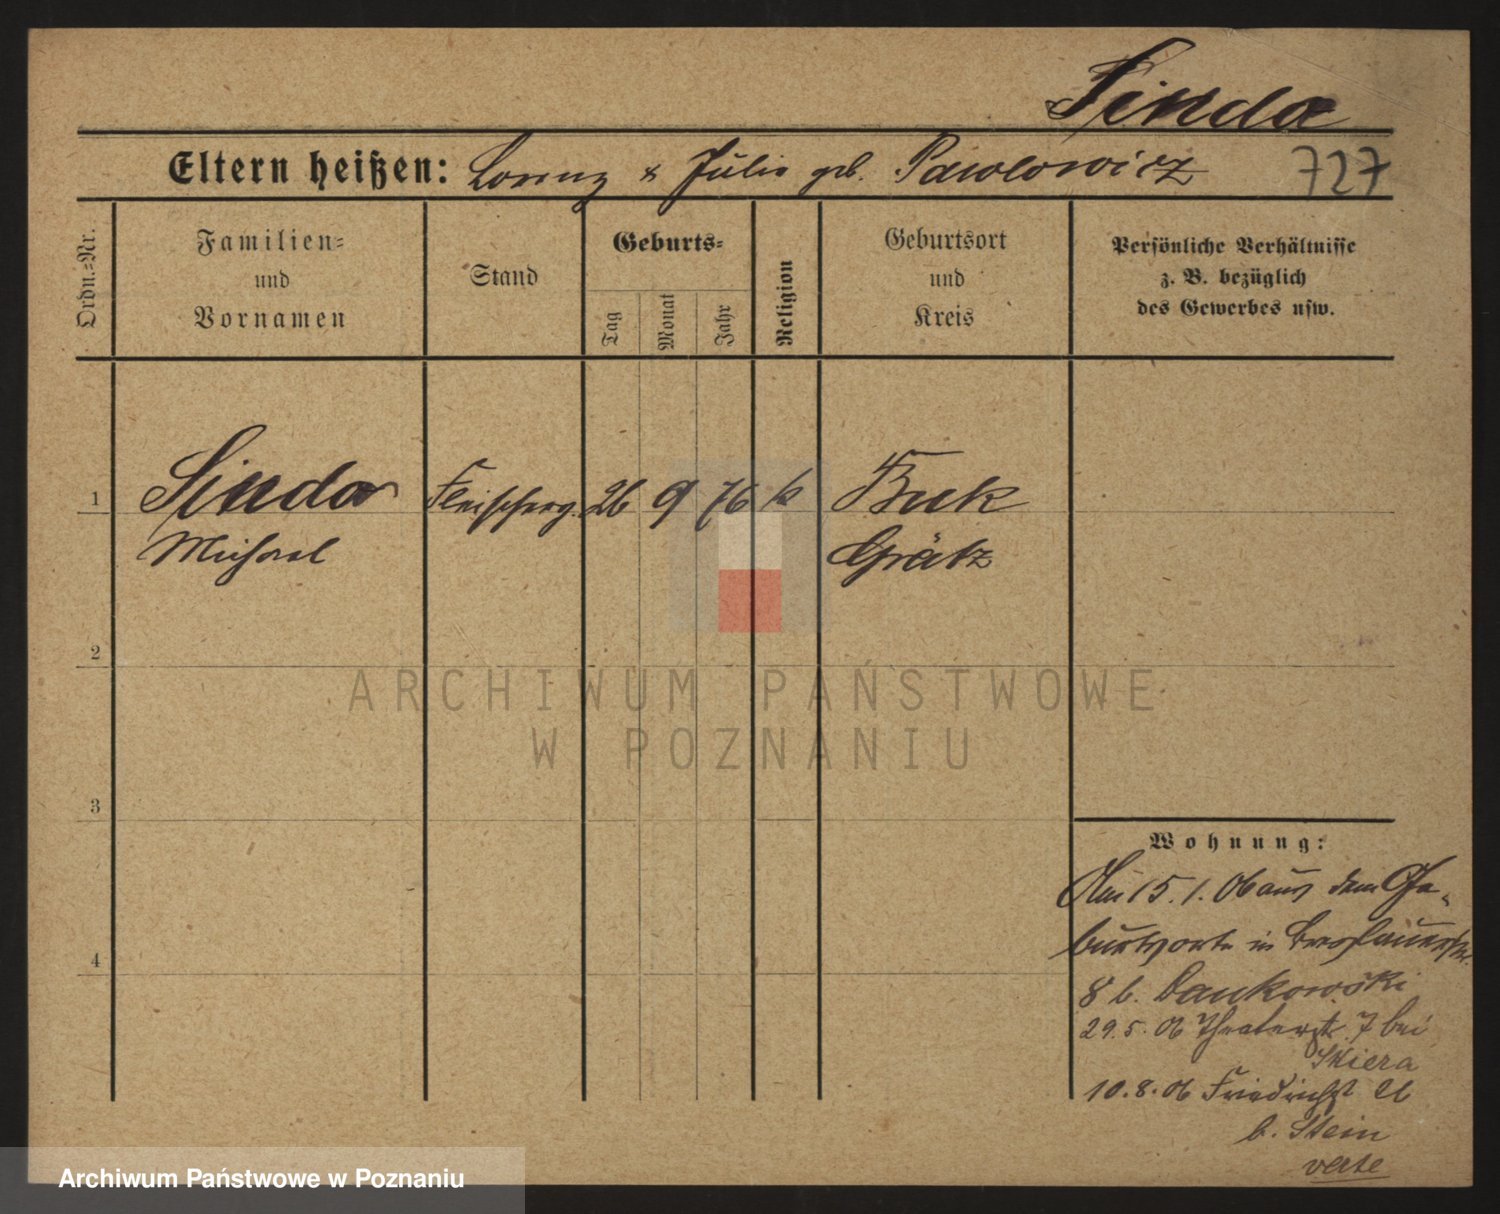 Sinda
Eltern heißen: Lorenz & Julie geb. Pawlowicz 727
Ordn.=Nr.
Familien=
und
Vornamen
Stand
Geburts=
Tag
Monat
Jahr
Religion
Geburtsort
und
Kreis
Persönliche Verhältnisse
z. B. bezüglich
des Gewerbes usw.
1 Sinda Fleischerg. 26 9 76 k Buk
Michael Grätz
2
3
4
ARCHIWUM PAŃSTWOWE
W POZNANIU
Wohnung:
Am 15.1.06 aus dem Ge-
burtsorte in Breslauerstr.
8 b. Dankowski
29.5.06 Theaterstr. 7 bei
Skiera
10.8.06 Friedrichst
b. Stein
verte
Archiwum Państwowe w Poznaniu